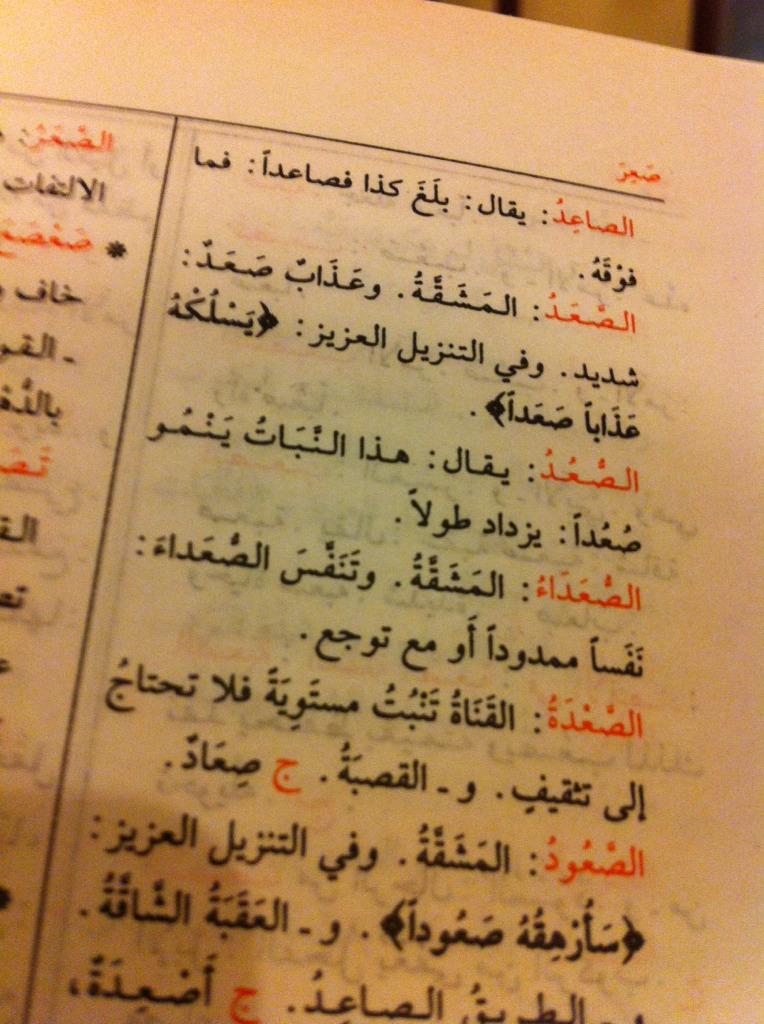 صَعِرَ
الصاعِدُ: يقال: بلَغَ كذا فصاعداً: فما
فوْقَهُ.
الصَّعَدُ: المَشَقَّةُ. وعَذَابٌ صَعَدٌ:
شديد. وفي التنزيل العزيز: ﴿يَسْلُكْهُ
عَذَاباً صَعَداً﴾.
الصُّعُدُ: يقال: هذا النَّبَاتُ يَنْمُو
صُعُداً: يزداد طولاً.
الصُّعَدَاءُ: المَشَقَّةُ. وتَنَفَّسَ الصُّعَداءَ:
نَفَساً ممدوداً أَو مع توجع.
الصَّعْدَةُ: القَنَاةُ تَنْبُتُ مستَوِيَةً فلا تحتاجُ
إلى تثقيفٍ. و ـ القصبَةُ. ج صِعَادٌ.
الصَّعُودُ: المَشَقَّةُ. وفي التنزيل العزيز:
﴿سَأُرْهِقُهُ صَعُوداً﴾. و ـ العَقَبَةُ الشَّاقَّةُ.
و ـ الطريقُ الصاعِدُ. ج أَصْعِدَةٌ،
الصَّعَرُ:
الالتفات
* صَعْصَعَ
خاف
ـ القو